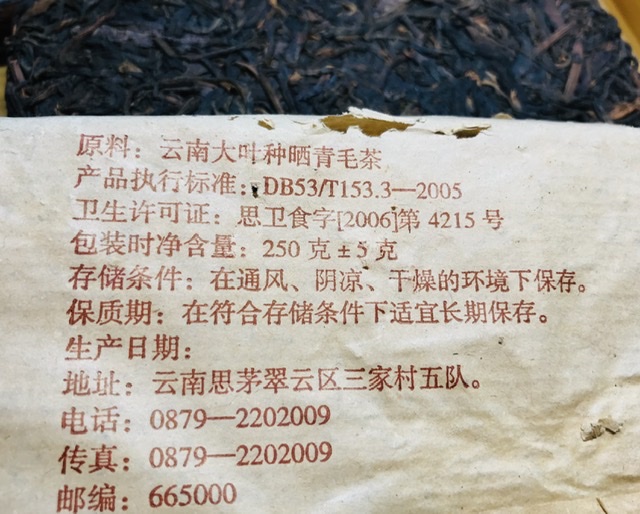 原料：云南大叶种晒青毛茶
产品执行标准：DB53/T153.3—2005
卫生许可证：思卫食字[2006]第 4215 号
包装时净含量：250 克±5 克
存储条件：在通风、阴凉、干燥的环境下保存。
保质期：在符合存储条件下适宜长期保存。
生产日期：
地址：云南思茅翠云区三家村五队。
电话：0879—2202009
传真：0879—2202009
邮编：665000